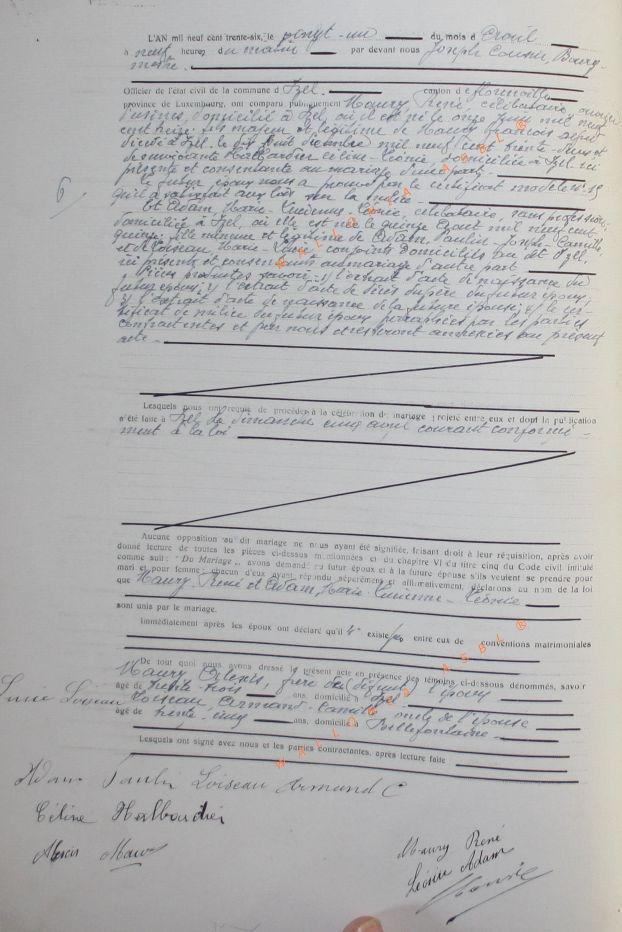 L'AN mil neuf cent trente-six, le vingt-un du mois d'Avril
à neuf heures du matin par devant nous Joseph Cousin, Bourg-
mestre.
Officier de l'état civil de la commune d'Izel canton de Florenville
province de Luxembourg, ont comparu publiquement Maury, René, célibataire, ouvrier
d'usines, domicilié à Izel, où il est né le onze juin mil neuf
cent treize, fils majeur et légitime de Maury François
décédé à Izel, le dix huit décembre mil neuf cent trente-deux et
de survivante Halbardier Céline-Léonie, domiciliée à Izel ici
présente et consentante au mariage d'une part.
Le futur époux nous a prouvé par le certificat modèle
qu'il a satisfait aux lois sur la milice.
6
Et Adam Marie-Lucienne-Léonie, célibataire, sans profession,
domiciliée à Izel, où elle est née le quinze Août mil neuf cent
quinze, fille mineure et légitime de Adam Paulin-Joseph-Camille
et de Loiseau Marie-Lucie conjoints domiciliés au dit Izel.
ici présents et consentants au mariage d'autre part.
Pièces produites savoir: 1/ l'extrait d'acte de naissance du
futur époux; 2/ l'extrait d'acte de décès du père du futur époux;
3/ l'extrait d'acte de naissance de la future épouse; 4/ le cer-
tificat de milice du futur époux paraphées par les parties
contractantes et par nous et resteront annexées au présent
acte.
Lesquels nous ont requis de procéder à la célébration du mariage projeté entre eux et dont la publication
a été faite à Izel le dimanche cinq avril courant conformé-
ment à la loi
Aucune opposition au dit mariage ne nous ayant été signifiée, faisant droit à leur réquisition, après avoir
donné lecture de toutes les pièces ci-dessus mentionnées et du chapitre VI du titre cinq du Code civil intitulé
comme suit: "Du Mariage", avons demandé au futur époux et à la future épouse s'ils veulent se prendre pour
mari et pour femme; chacun d'eux ayant répondu séparément et affirmativement, déclarons au nom de la loi
que Maury, René et Adam, Marie-Lucienne-Léonie
sont unis par le mariage.
Immédiatement après les époux ont déclaré qu'il n'existe pas entre eux de conventions matrimoniales
De tout quoi nous avons dressé le présent acte en présence des témoins ci-dessous dénommés, savoir
Maury Alexis, frère de l'époux
âgé de trente-trois ans, domicilié à Izel
Loiseau, Armand-Camille oncle de l'épouse
âgé de trente-cinq ans, domicilié à Bellefontaine
Lesquels ont signé avec nous et les parties contractantes, après lecture faite
Lucie Loiseau
Adam Paulin Loiseau Armand C
Céline Halbardier
Alexis Maury
Maury René
Léonie Adam
WALLONIA ASBL ®
WALLONIA ASBL ®